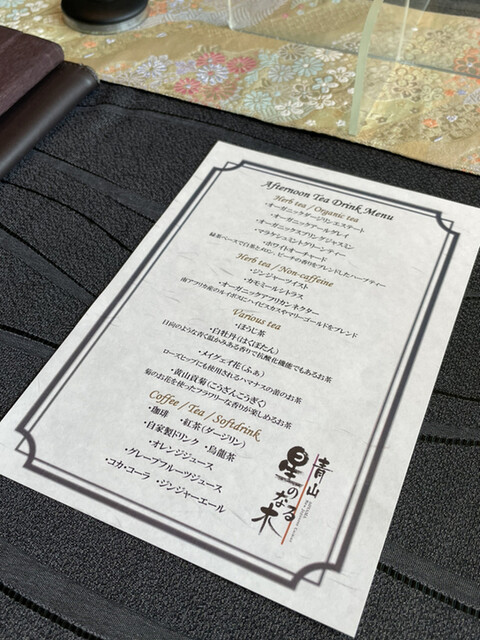 Afternoon Tea Drink Menu
Herb tea / Organic tea
・オーガニックダージリンエステート
・オーガニックアールグレイ
・オーガニックスプリングジャスミン
・マラケシュミントグリーンティー
・ホワイトオーチャード
緑茶ベースで白茶とメロン、ピーチの香りをブレンドしたハーブティー
Herb tea / Non-caffeine
・ジンジャーツイスト
・カモミールシトラス
・オーガニックアフリカンネクター
南アフリカ産のルイボスにハイビスカスやマリーゴールドをブレンド
Various tea
・ほうじ茶
・白牡丹（はくぼたん）
日向のような甘く温かみある香りで抗酸化機能でもあるお茶
・メイグェイ花（ふぁ）
ローズヒップにも使用されるハマナスの蕾のお茶
・黄山貢菊（こうざんこうぎく）
菊のお花を使ったフラワリーな香りが楽しめるお茶
Coffee / Tea / Softdrink
・珈琲 ・紅茶（ダージリン）
・自家製ドリンク ・烏龍茶
・オレンジジュース
・グレープフルーツジュース
・コカ・コーラ ・ジンジャーエール
青山
星のなる木